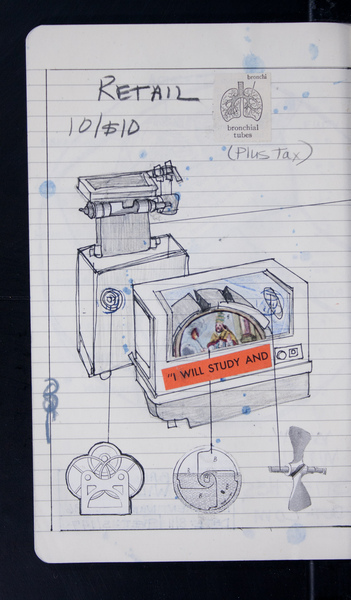 RETAIL
10/$10
bronchi
bronchial
tubes
(Plus Tax)
"I WILL STUDY AND